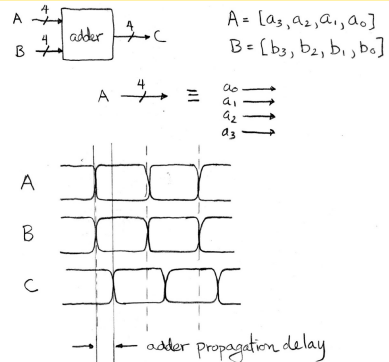 A 4 adder 4 C
B 4
A = [a3, a2, a1, a0]
B = [b3, b2, b1, b0]
A 4 ≡ a0
a1
a2
a3
A
B
C
adder propagation delay